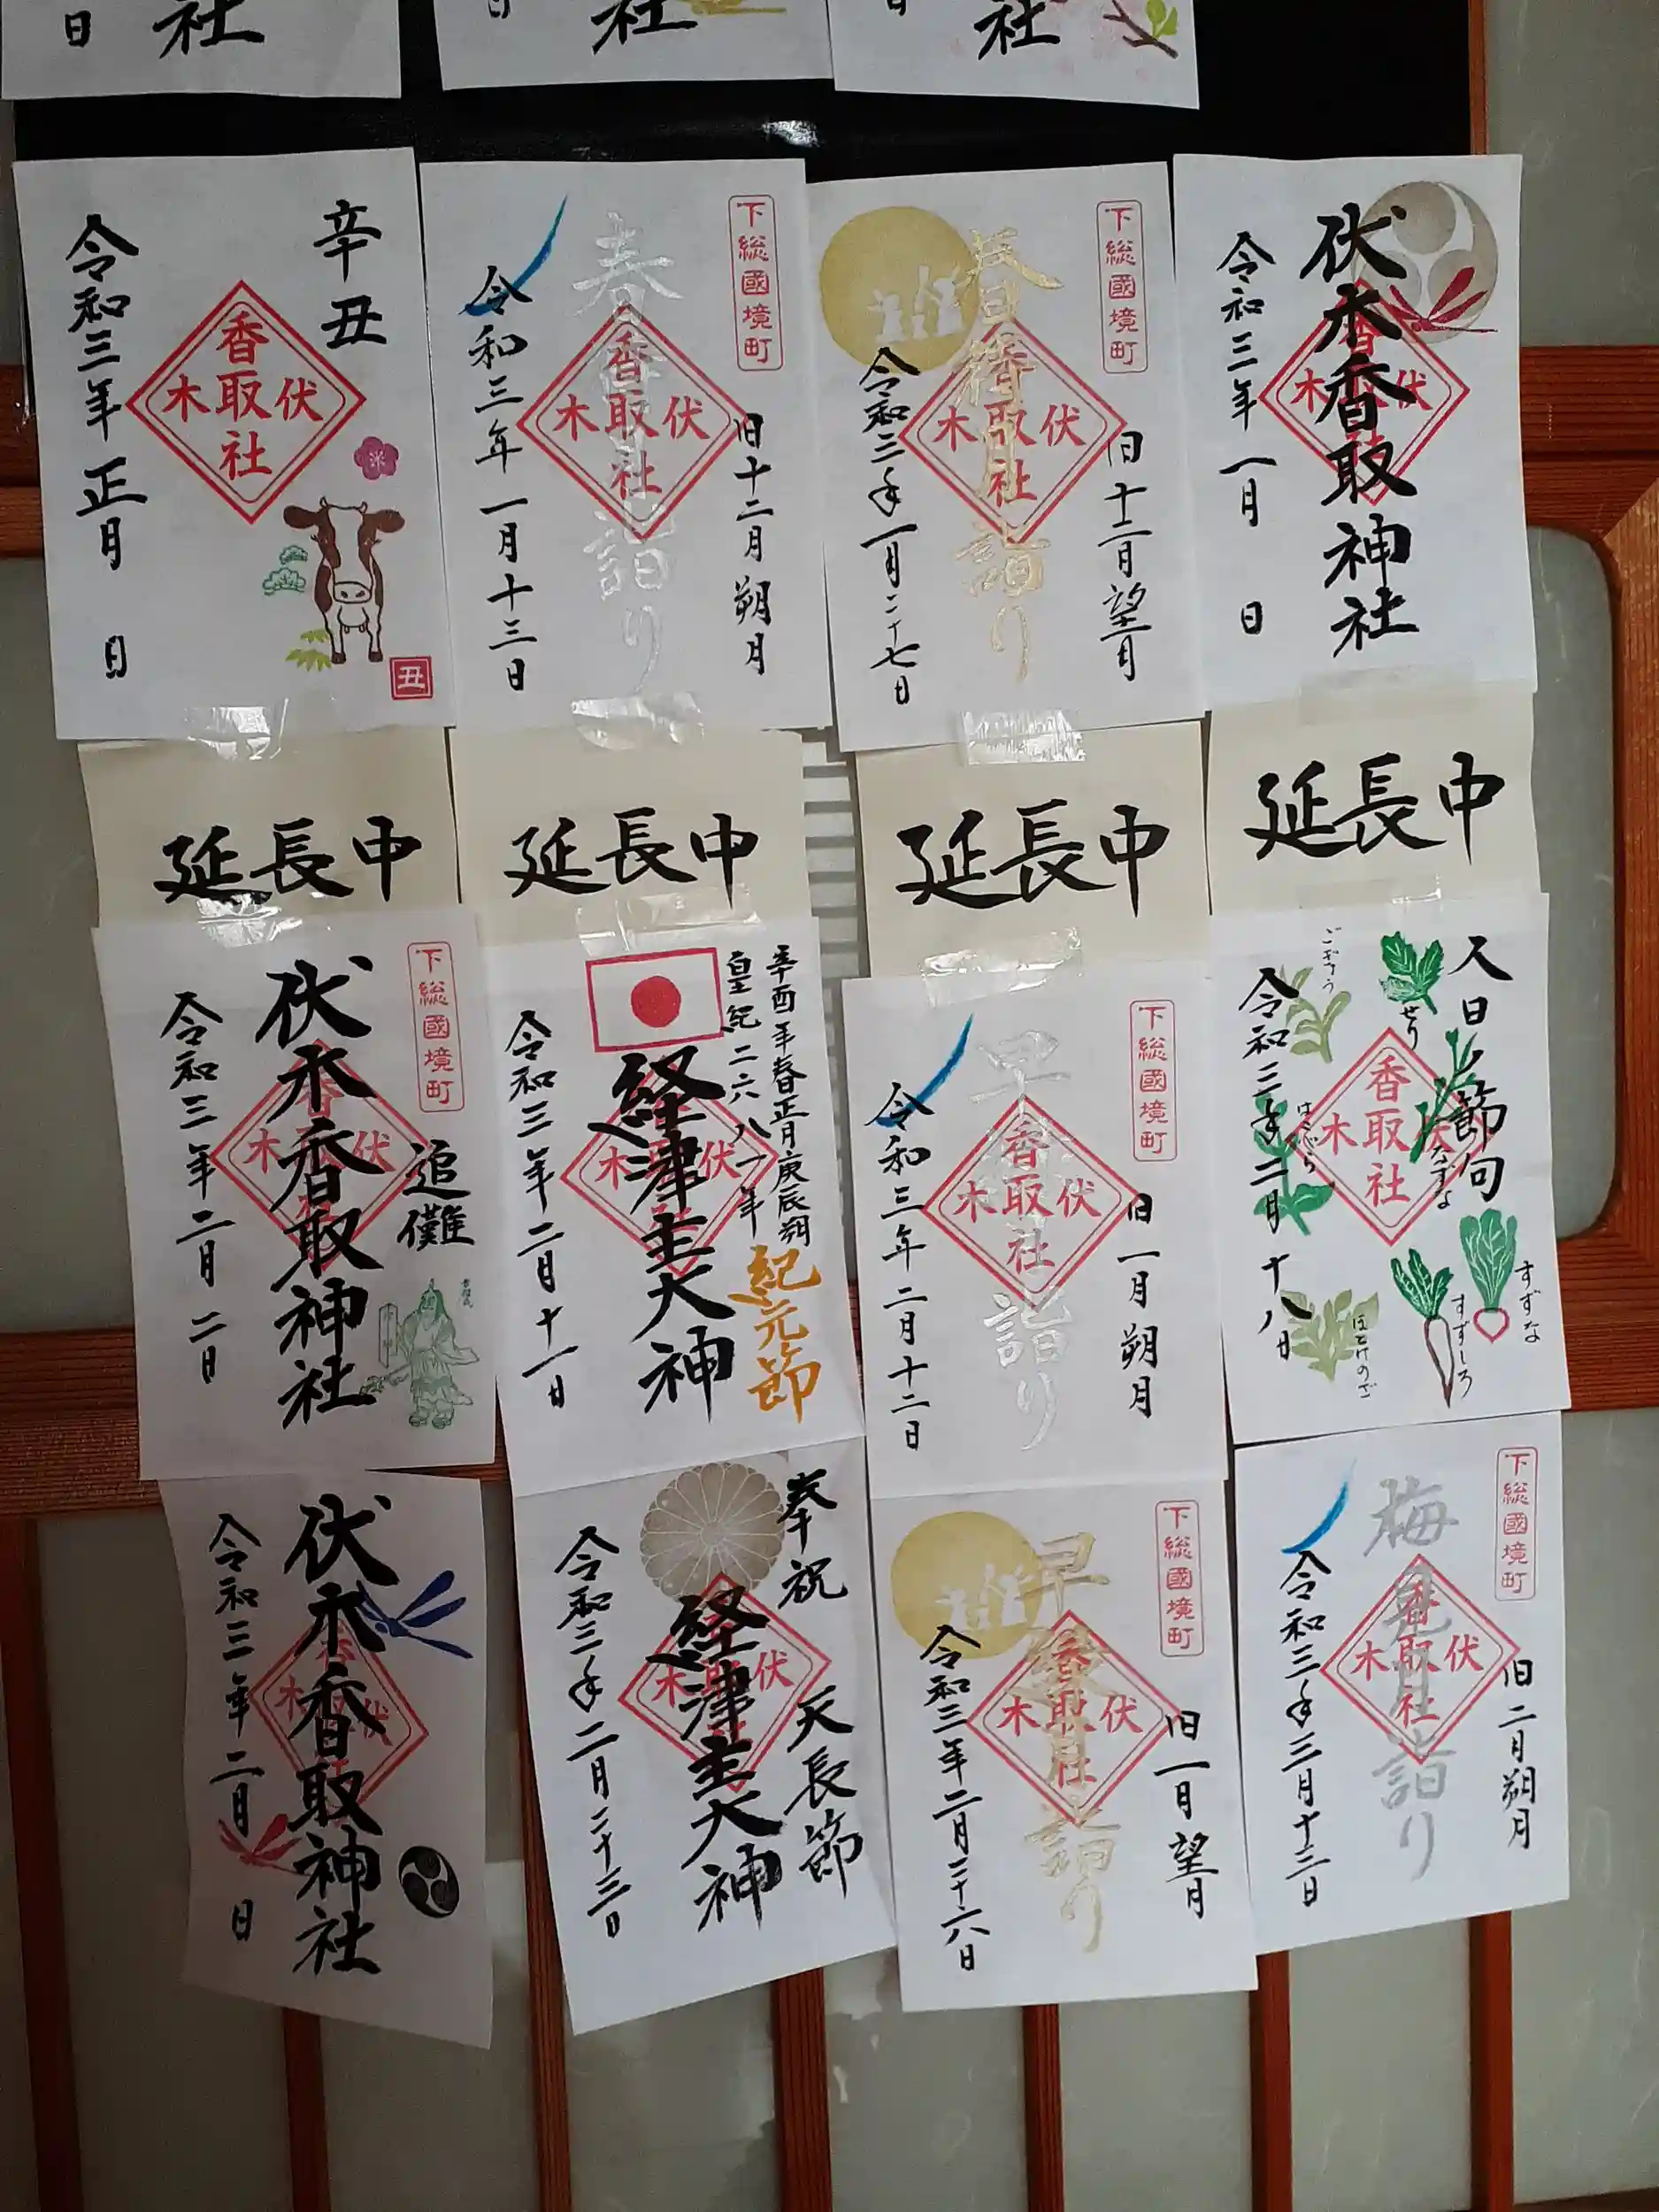 日
社
日
社
日
社
辛丑
香取社
伏木
令和三年 正月 日
丑
下総國境町
旧十二月 朔月
春椿月詣り
香取社
伏木
令和三年 一月十三日
下総國境町
旧十二月 望月
春椿月詣り
香取社
伏木
令和三年 一月二十七日
伏木香取神社
伏木
令和三年 一月 日
延長中
延長中
延長中
延長中
下総國境町
追儺
伏木香取神社
伏木
令和三年 二月 二日
辛酉年春正月庚辰朔
皇紀二六八一年
紀元節
経津主大神
伏木
令和三年 二月 十一日
下総國境町
旧一月 朔月
早 詣り
香取社
伏木
令和三年 二月十二日
人日ノ節句
せり
ごぎょう
なずな
はこべら
すずな
すずしろ
ほとけのざ
香取社
伏木
令和三年 二月 十八日
伏木香取神社
伏木
令和三年 二月 日
奉祝 天長節
経津主大神
伏木
令和三年 二月二十三日
下総國境町
旧一月 望月
早 月詣り
香取社
伏木
令和三年 二月二十六日
下総國境町
旧二月 朔月
梅見月詣り
香取社
伏木
令和三年 三月十三日